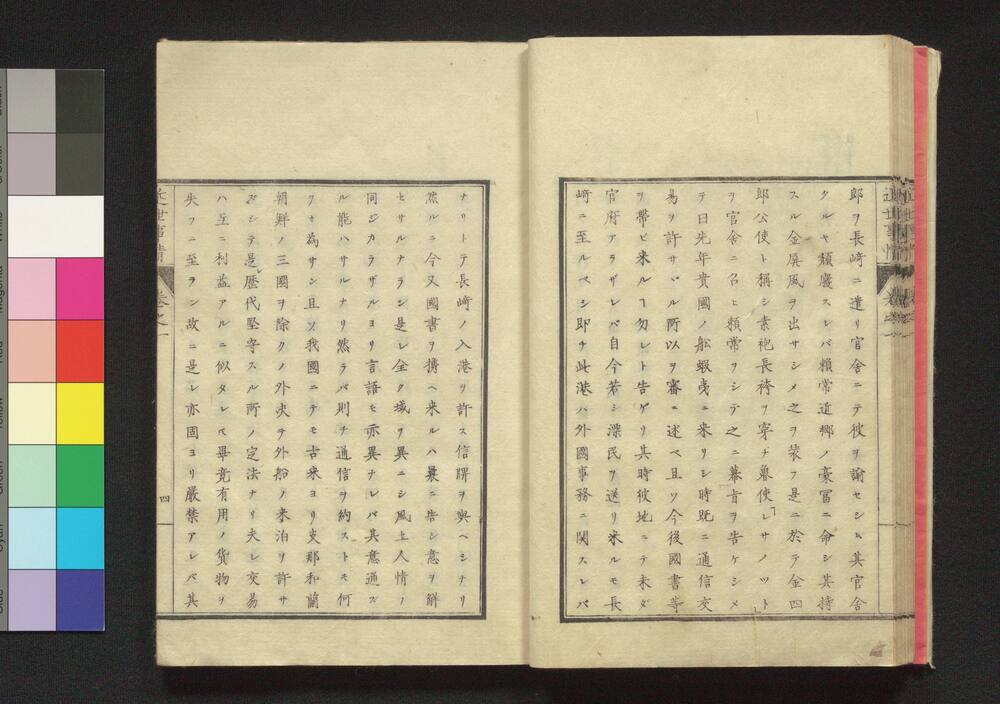 郎ヲ長崎ニ遣リ官舎ニテ彼ヲ諭セシム其官舎
タルヤ頽廢スレバ頼常近郷ノ豪冨ニ命シ其持
スル金屏風ヲ出サシメ之ヲ装フ是ニ於テ金四
郎公使ト稱シ素袍長袴ヲ穿チ魯使レサノット
ヲ官舎ニ召ヒ頼常ヲシテ之ニ幕旨ヲ告ケシメ
テ曰先年貴國ノ舩蝦夷ニ来リシ時既ニ通信交
易ヲ許サヾル所以ヲ審ニ述ベ且ツ今後國書等
ヲ帶ビ来ルヿ勿レト告ゲリ其時彼地ニテ未ダ
官府アラザレバ自今若シ漂民ヲ送リ来ルモ長
崎ニ至ルベシ即チ此港ハ外國事務ニ関スレバ
ナリトテ長崎ノ入港ヲ許ス信牌ヲ與ヘシナリ
然ルニ今又國書ヲ携ヘ来ルハ曩ニ告シ意ヲ解
セサルナラン是レ全ク域ヲ異ニシ風土人情ノ
同ジカラザルヨリ言語モ亦異ナレバ其意通ズ
ル能ハサルナリ然ラバ則チ通信ヲ約ストモ何
ヲセ為サン且ツ我國ニテモ古来ヨリ支那和蘭
朝鮮ノ三國ヲ除クノ外夫ヲ外船ノ来泊ヲ許サ
ズシテ是レ歴代堅守スル所ノ定法ナリ夫レ交易
ハ互ニ利益アルニ似タレバ畢竟有用ノ貨物ヲ
失フニ至ラン故ニ是レ亦固ヨリ嚴禁アレバ其
近世事情
卷之一
四